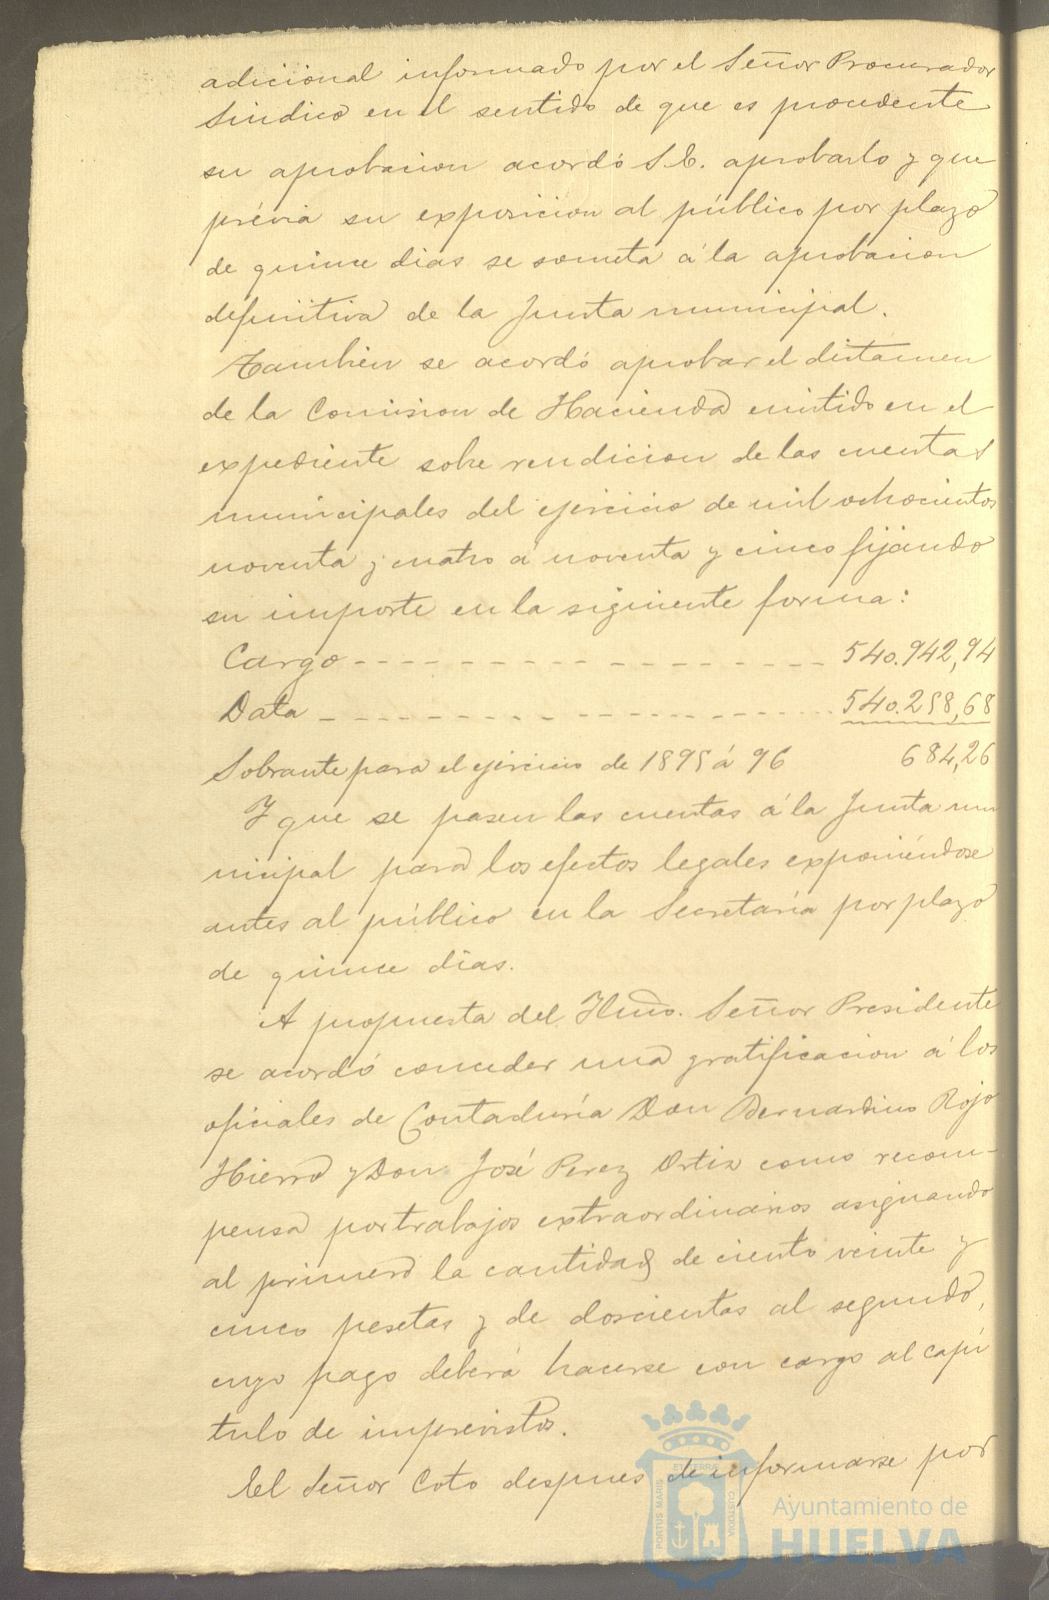 adicional informado por el Señor Procurador
Sindico en el sentido de que es procedente
su aprobacion acordó S.E. aprobarlo y que
prévia su exposicion al público por plazo
de quince dias se someta á la aprobacion
definitiva de la Junta municipal.
Tambien se acordó aprobar el dictamen
de la Comision de Hacienda emitido en el
expediente sobre rendicion de las cuentas
municipales del ejercicio de mil ochocientos
noventa y cuatro á noventa y cinco fijando
su importe en la siguiente forma:
Cargo 540.942,94
Data 540.258,68
Sobrante para el ejercicio de 1895 á 96 684,26
Y que se pasen las cuentas á la Junta mu
nicipal para los efectos legales exponiéndose
antes al público en la Secretaría por plazo
de quince dias.
A propuesta del Iltmo. Señor Presidente
se acordó conceder una gratificacion á los
oficiales de Contaduría Don Bernardino Rojo
Hierro y Don José Perez Ortiz como recom-
pensa por trabajos extraordinarios asignando
al primero la cantidad de ciento veinte y
cinco pesetas y de doscientas al segundo,
cuyo pago deberá hacerse con cargo al capí
tulo de imprevistos.
El Señor Coto despues de informarse por
PORTUS MARIS ET TERRÆ CUSTODIA
Ayuntamiento de
HUELVA